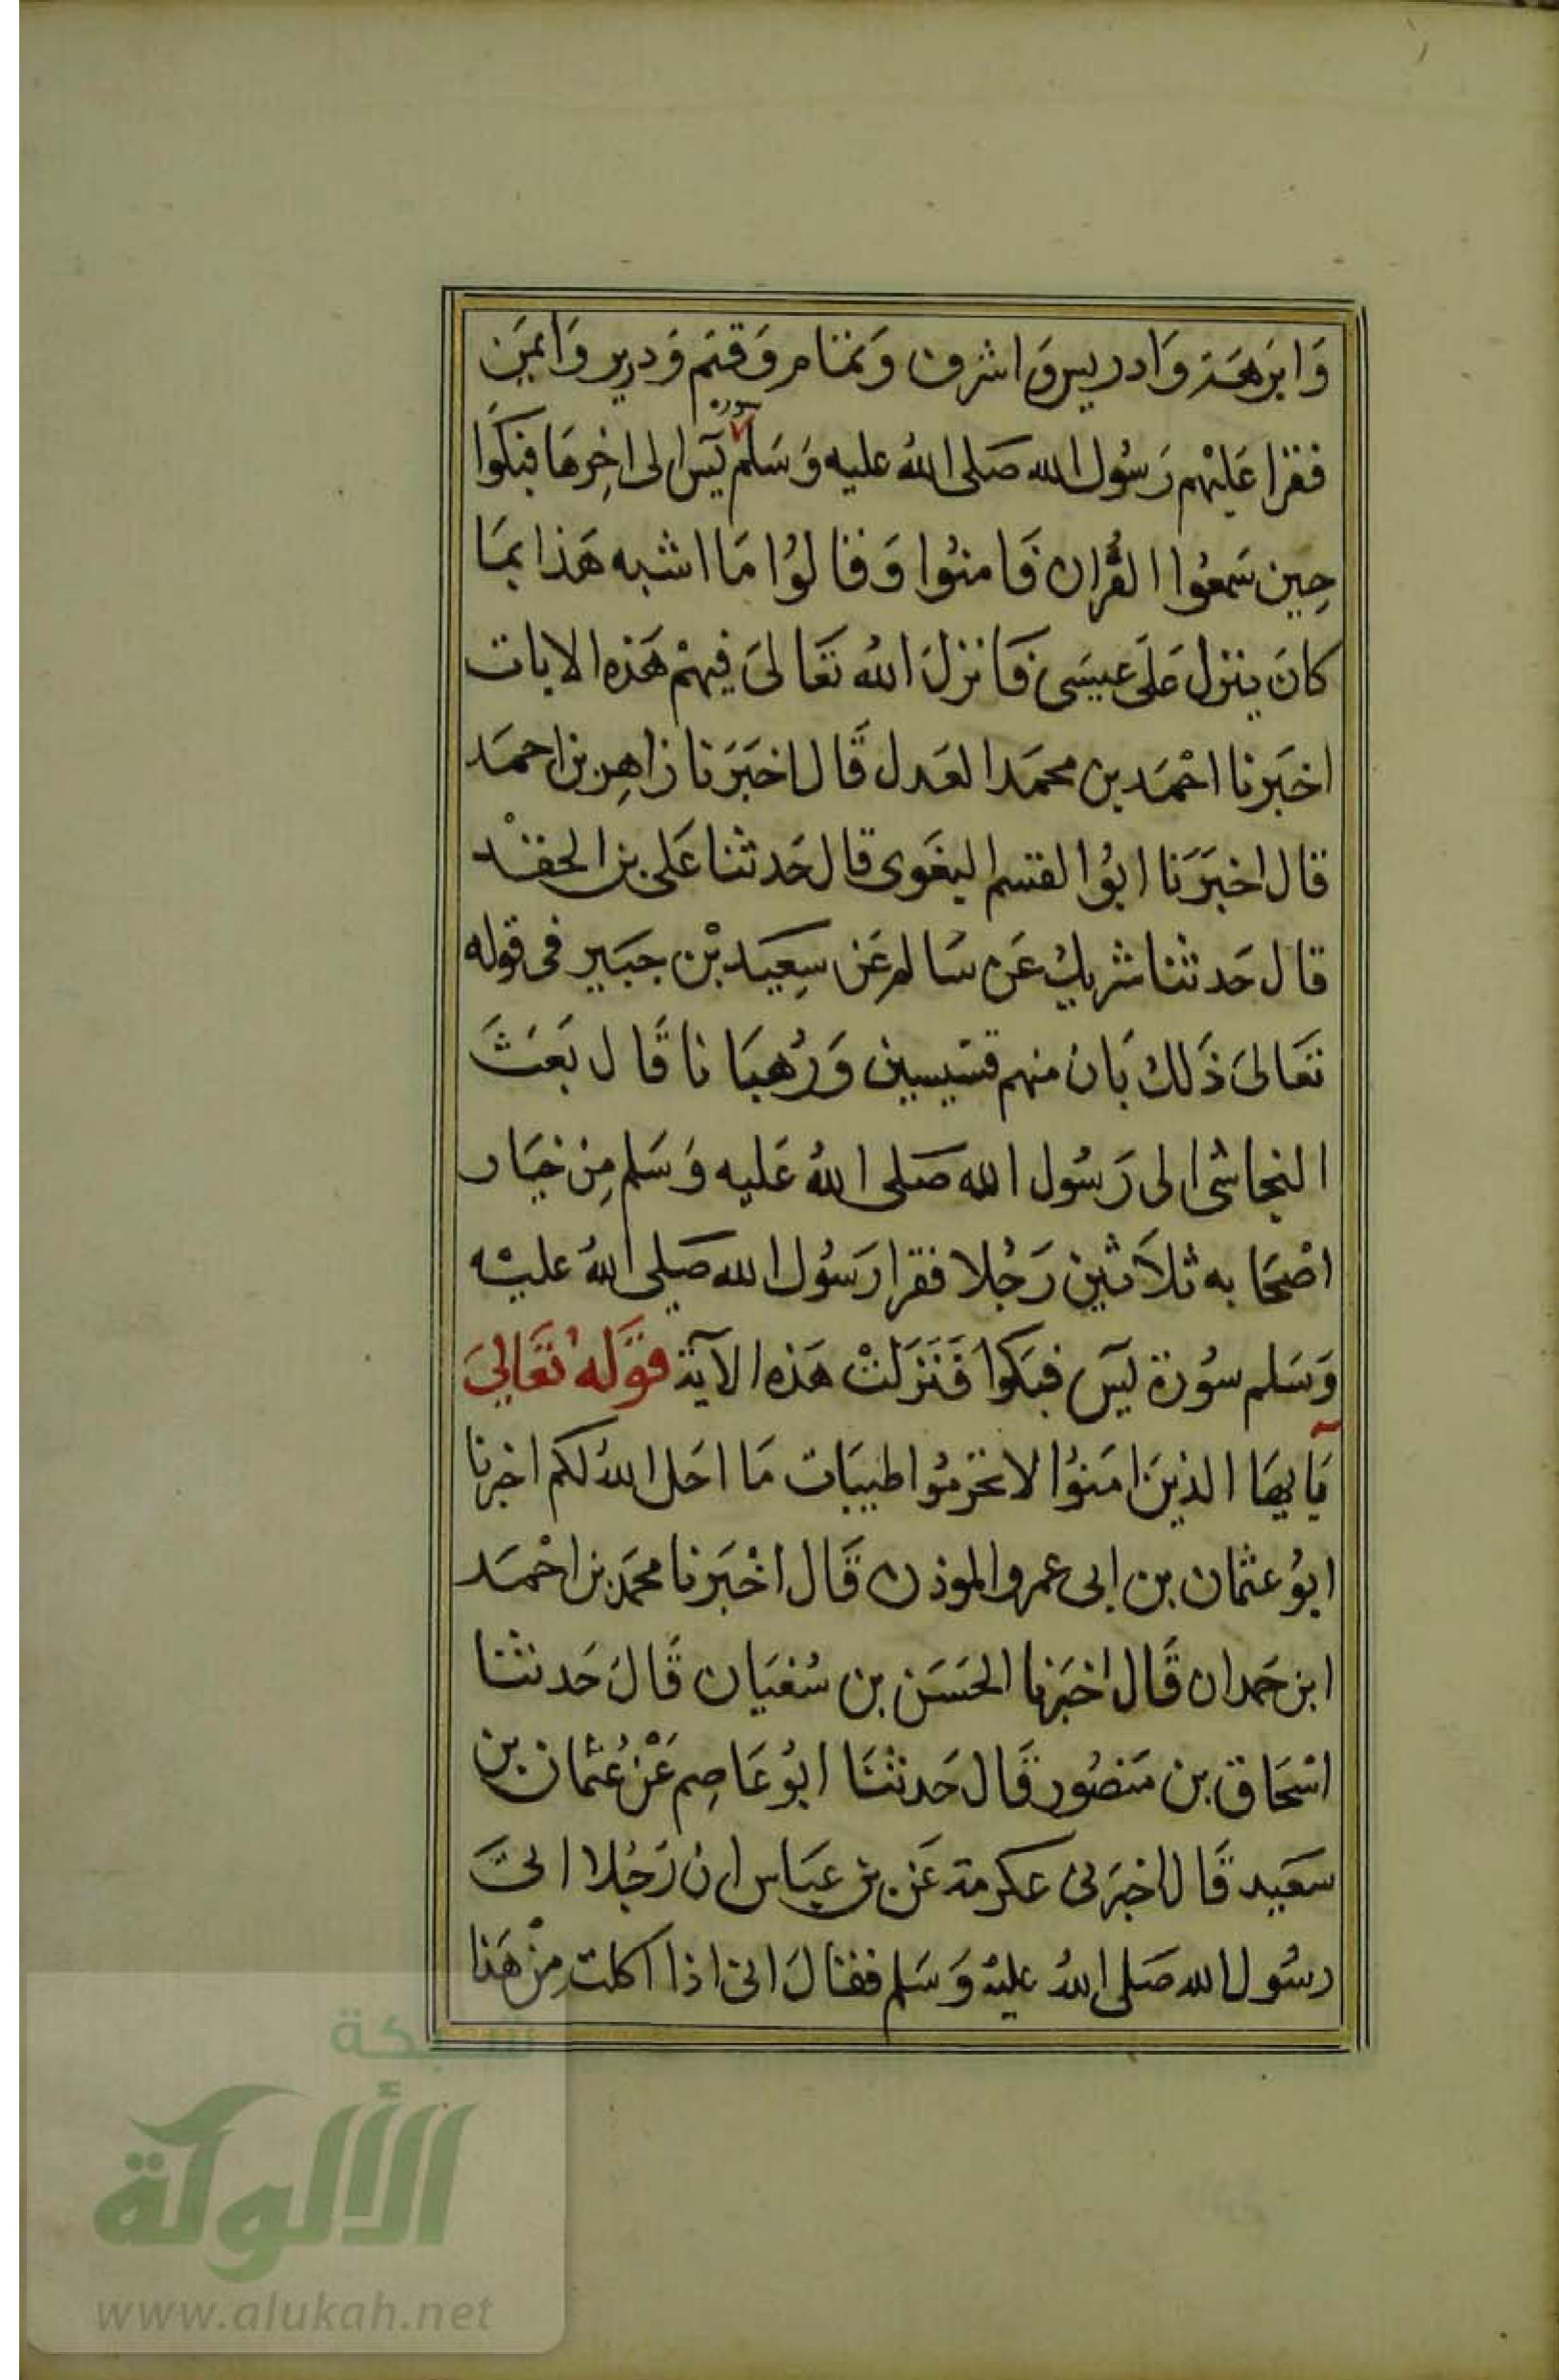 وَابرَهَة وَادريس وَاشرف وَتمام وَقثم وَدريد وَايمَن
فقرا عَليْهم رَسُول الله صَلى اللهُ عليه وَسَلم سورة يٓس الى اخِرهَا فبَكَوا
حِين سَمعُوا القُران فَامنُوا وَقالوُا مَا اشبه هَذا بمَا
كانَ ينزل عَلَى عيسَى فَانزلَ اللهُ تعَالىَ فيهمْ هَذه الايات
اخبَرنا احْمَد بن محمَد العَدل قَال اخبَرَنا زاهِر بن احمَد
قال اخبَرَنا ابوُ القسم البغَوى قال حَدثنا عَلى بن الجعْد
قال حَدثنا شريك عَن سَالم عَن سِعيَد بْن جبَير فى قوله
تعَالىَ ذَلك بَان منهم قسّيسين وَرُهبَانا قَال بَعَثَ
النجاشى الى رَسُول الله صَلى اللهُ عَليه وَسَلم مِن خيَار
اصْحَابه ثلاَثين رَجُلا فقرا رَسُول الله صَلى اللهُ عليْه
وَسَلم سوُرة يٓس فبَكوا فَنَزَلتْ هَذه الآية قوَلهُ تعَالىَ
يَآ ايهَا الذينَ امَنوُا لا تحَرّمُوا طيبَات مَا احَل اللهُ لكم اخبرنا
ابوُ عثمان بن ابى عمرو الموذن قَال اخْبَرنا محمَد بن احْمَد
ابن حَمدان قَال اخبَرنا الحَسَن بن سُفيَان قَالَ حَدثنا
اسْحَاق بن مَنصُور قَال حَدثنَا ابوُ عَاصِم عَنْ عُثمان بن
سَعَيد قَال اخبرَنى عكرمة عَن بن عبَاس ان رَجُلا اتىَ
رسُول الله صَلى اللهُ عليْه وَسَلم فقالَ انى اذا اكلت مِنْ هَذا
شبكة
الألوكة
www.alukah.net